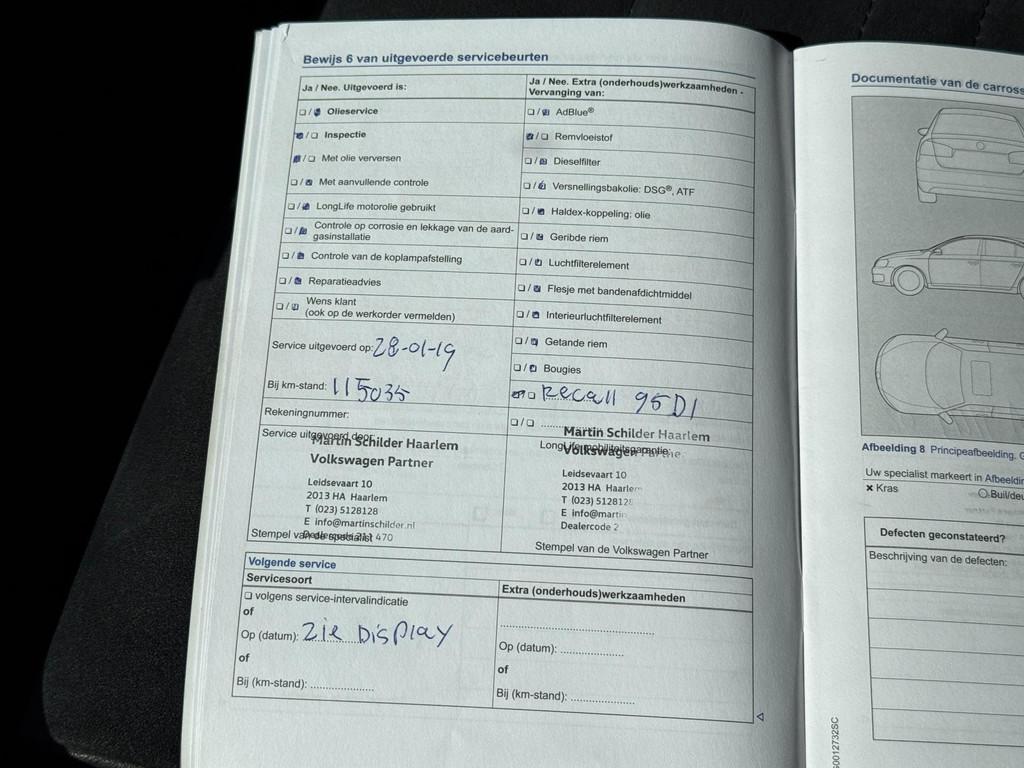 Bewijs 6 van uitgevoerde servicebeurten
Ja / Nee. Uitgevoerd is:
☐ / Olieservice
/ ☐ Inspectie
/ ☐ Met olie verversen
☐ / Met aanvullende controle
☐ / LongLife motorolie gebruikt
☐ / Controle op corrosie en lekkage van de aard-
gasinstallatie
☐ / Controle van de koplampafstelling
☐ / Reparatieadvies
☐ / Wens klant
(ook op de werkorder vermelden)
Service uitgevoerd op: 28-01-19
Bij km-stand: 115035
Rekeningnummer:
Service uitgevoerd door:
Martin Schilder Haarlem
Volkswagen Partner
Leidsevaart 10
2013 HA Haarlem
T (023) 5128128
E info@martinschilder.nl
470
Stempel van de specialist
Ja / Nee. Extra (onderhouds)werkzaamheden -
Vervanging van:
☐ / AdBlue®
/ ☐ Remvloeistof
☐ / Dieselfilter
☐ / Versnellingsbakolie: DSG®, ATF
☐ / Haldex-koppeling: olie
☐ / Geribde riem
☐ / Luchtfilterelement
☐ / Flesje met bandenafdichtmiddel
☐ / Interieurluchtfilterelement
☐ / Getande riem
☐ / Bougies
/ ☐ Recall 95D1
☐ / ☐ ....................
Martin Schilder Haarlem
LongLife mobiliteitsgarantie:
Volkswagen Partne
Leidsevaart 10
2013 HA Haarlem
T (023) 512812
E info@martin
Dealercode 2
Stempel van de Volkswagen Partner
Volgende service
Servicesoort
☐ volgens service-intervalindicatie
of
Op (datum): Zie Display
of
Bij (km-stand): ....................
Extra (onderhouds)werkzaamheden
Op (datum): ....................
of
Bij (km-stand): ....................
Documentatie van de carross
Afbeelding 8 Principeafbeelding. G
Uw specialist markeert in Afbeeldin
× Kras
Buil/deu
Defecten geconstateerd?
Beschrijving van de defecten:
60012732SC